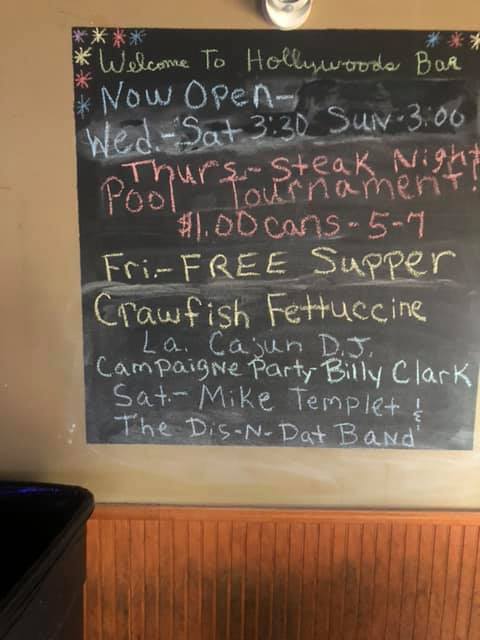 Welcome To Hollywoods Bar
Now Open-
Wed.-Sat 3:30 Sun-3:00
Thurs-Steak Night
Pool Tournament!
$1.00 cans-5-7
Fri-FREE Supper
Crawfish Fettuccine
La. Cajun D.J.
Campaigne Party Billy Clark
Sat-Mike Templet &
The Dis-N-Dat Band